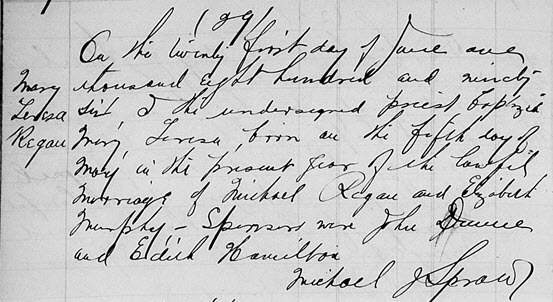 (29)
On the twenty first day of June one
Mary thousand Eight hundred and ninety
Teresa six, I the undersigned priest baptized
Regan Mary Teresa, born on the fifth day of
May in the present year of the lawful
marriage of Michael Regan and Elizabeth
Murphy – Sponsors were John Dunne
and Edith Hamilton
Michael J